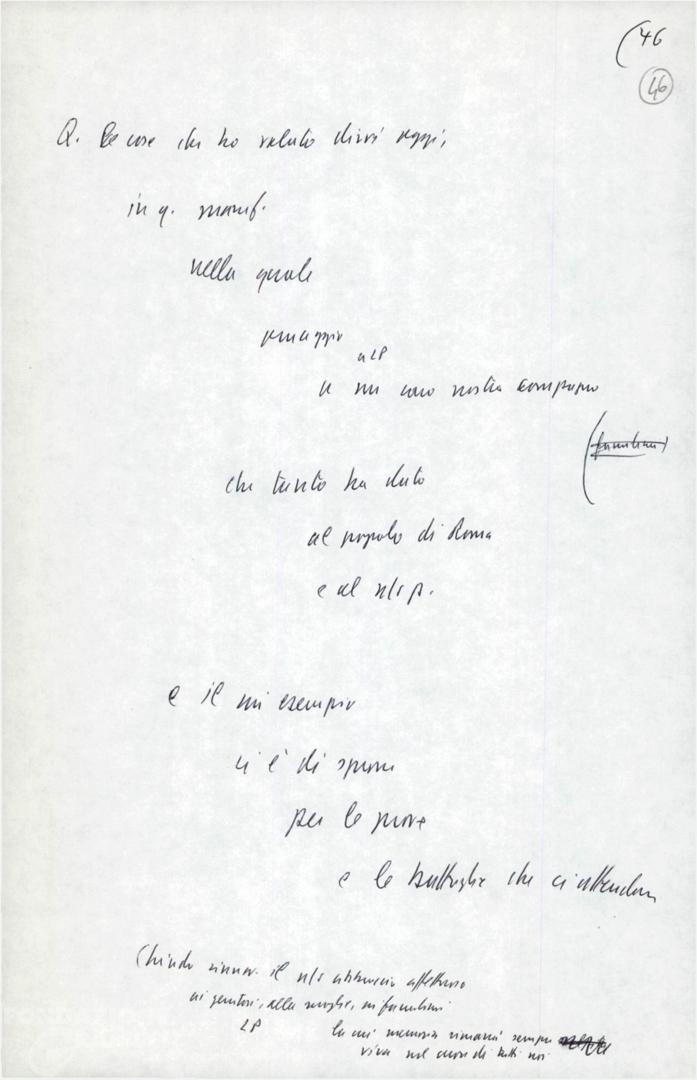 (46
46
Q. le cose che ho voluto dirvi oggi,
in q. manif.
nella quale
omaggio
a LP
a un caro nostro compagno
(familiari)
che tanto ha dato
al popolo di Roma
e al n/s p.
e il cui esempio
ci è di sprone
per le prove
e le battaglie che ci attendono
Chiudo rinnov. il n/s abbraccio affettuoso
ai genitori, alla moglie, ai familiari
LP
la cui memoria rimarrà sempre
viva nel cuore di tutti noi